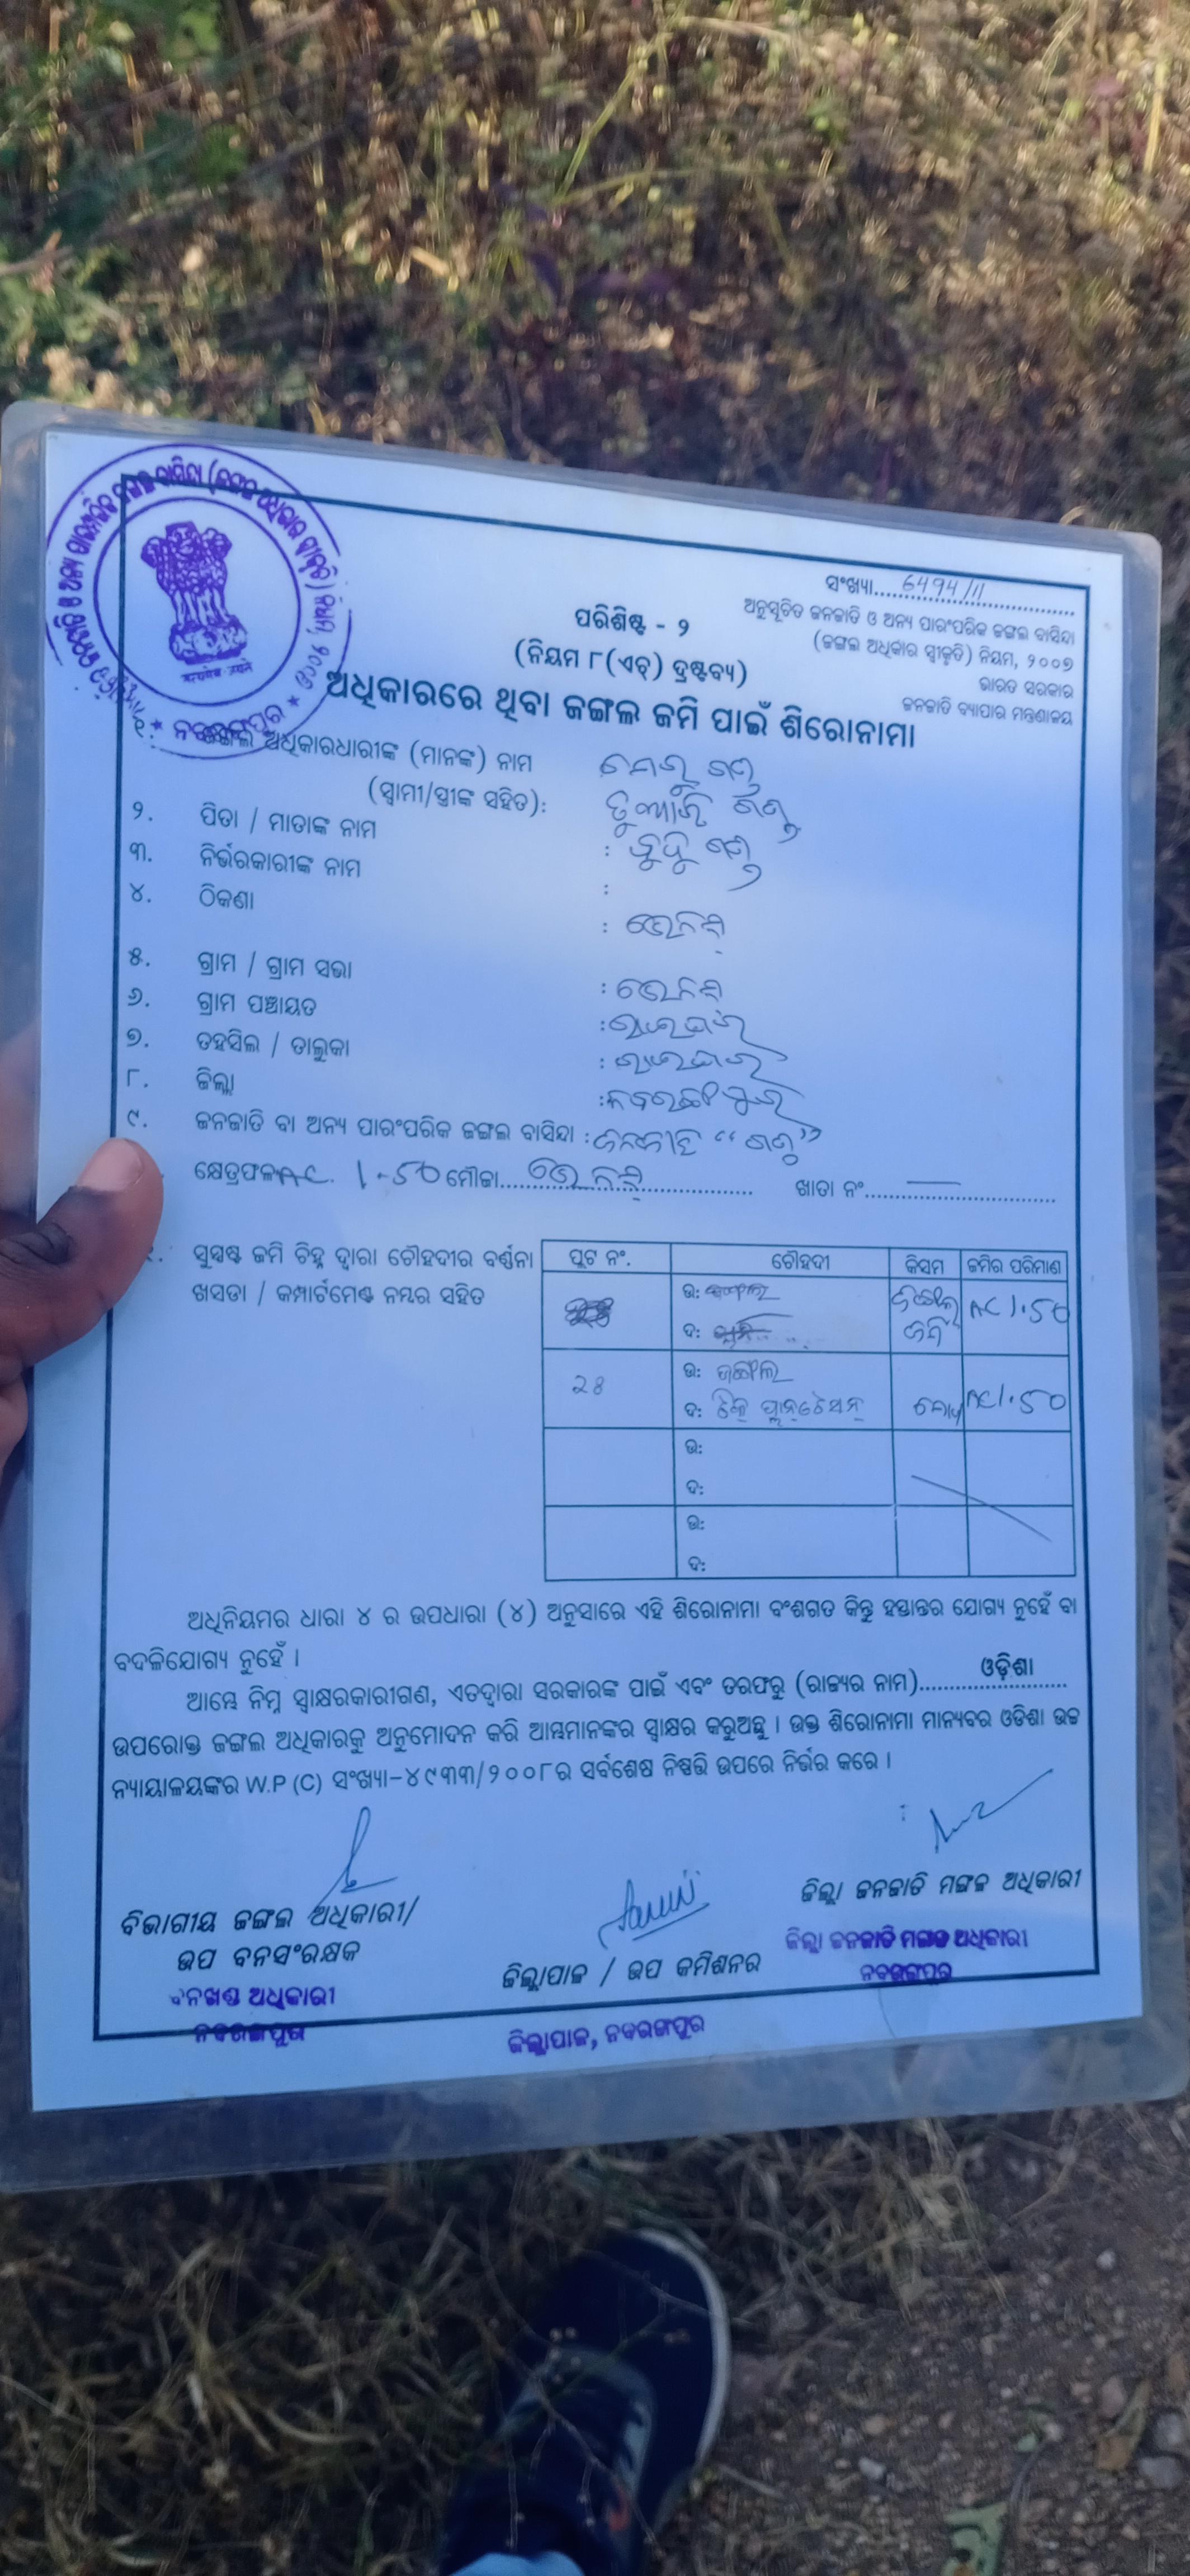 ସଂଖ୍ୟା.....6494/11
ଅନୁସୂଚିତ ଜନଜାତି ଓ ଅନ୍ୟ ପାରଂପରିକ ଜଙ୍ଗଲ ବାସିନ୍ଦା
(ଜଙ୍ଗଲ ଅଧିକାର ସ୍ୱୀକୃତି) ନିୟମ, ୨୦୦୭
ଭାରତ ସରକାର
ଜନଜାତି ବ୍ୟାପାର ମନ୍ତ୍ରଣାଳୟ
ପରିଶିଷ୍ଟ - ୨
(ନିୟମ ୮(ଏଚ୍) ଦ୍ରଷ୍ଟବ୍ୟ)
ଅଧିକାରରେ ଥିବା ଜଙ୍ଗଲ ଜମି ପାଇଁ ଶିରୋନାମା
ନବରଙ୍ଗପୁର
୧. ଜଙ୍ଗଲ ଅଧିକାରଧାରୀଙ୍କ (ମାନଙ୍କ) ନାମ
(ସ୍ୱାମୀ/ସ୍ତ୍ରୀଙ୍କ ସହିତ):
୨. ପିତା / ମାତାଙ୍କ ନାମ :
୩. ନିର୍ଭରକାରୀଙ୍କ ନାମ :
୪. ଠିକଣା :
୫. ଗ୍ରାମ / ଗ୍ରାମ ସଭା :
୬. ଗ୍ରାମ ପଞ୍ଚାୟତ : ରାଇଘର
୭. ତହସିଲ / ତାଲୁକା : ରାଇଘର
୮. ଜିଲ୍ଲା : ନବରଙ୍ଗପୁର
୯. ଜନଜାତି ବା ଅନ୍ୟ ପାରଂପରିକ ଜଙ୍ଗଲ ବାସିନ୍ଦା : ଜନଜାତି "ଗଣ୍ଡ"
କ୍ଷେତ୍ରଫଳ AC. 1-50 ମୌଜା.......... ଖାତା ନଂ..........
ସୁସ୍ପଷ୍ଟ ଜମି ଚିହ୍ନ ଦ୍ୱାରା ଚୌହଦୀର ବର୍ଣ୍ଣନା
ଖସଡା / କମ୍ପାର୍ଟମେଣ୍ଟ ନମ୍ବର ସହିତ
ପ୍ଲଟ ନଂ. ଚୌହଦୀ କିସମ ଜମିର ପରିମାଣ
ଉ: ଜଙ୍ଗଲ AC 1.50
ଦ: ଜମି
28 ଉ: ଜଙ୍ଗଲ
ଦ: ଟିକ୍ ପ୍ଲାନ୍ଟେସନ୍ AC 1.50
ଉ:
ଦ:
ଉ:
ଦ:
ଅଧିନିୟମର ଧାରା ୪ ର ଉପଧାରା (୪) ଅନୁସାରେ ଏହି ଶିରୋନାମା ବଂଶଗତ କିନ୍ତୁ ହସ୍ତାନ୍ତର ଯୋଗ୍ୟ ନୁହେଁ ବା
ବଦଳିଯୋଗ୍ୟ ନୁହେଁ ।
ଆମ୍ଭେ ନିମ୍ନ ସ୍ୱାକ୍ଷରକାରୀଗଣ, ଏତଦ୍ୱାରା ସରକାରଙ୍କ ପାଇଁ ଏବଂ ତରଫରୁ (ରାଜ୍ୟର ନାମ)......ଓଡ଼ିଶା......
ଉପରୋକ୍ତ ଜଙ୍ଗଲ ଅଧିକାରକୁ ଅନୁମୋଦନ କରି ଆମ୍ଭମାନଙ୍କର ସ୍ୱାକ୍ଷର କରୁଅଛୁ । ଉକ୍ତ ଶିରୋନାମା ମାନ୍ୟବର ଓଡିଶା ଉଚ୍ଚ
ନ୍ୟାୟାଳୟଙ୍କର W.P (C) ସଂଖ୍ୟା-୪୯୩୩/୨୦୦୮ର ସର୍ବଶେଷ ନିଷ୍ପତ୍ତି ଉପରେ ନିର୍ଭର କରେ ।
ବିଭାଗୀୟ ଜଙ୍ଗଲ ଅଧିକାରୀ/
ଉପ ବନସଂରକ୍ଷକ
ବନଖଣ୍ଡ ଅଧିକାରୀ
ନବରଙ୍ଗପୁର
ଜିଲ୍ଲାପାଳ / ଉପ କମିଶନର
ଜିଲ୍ଲାପାଳ, ନବରଙ୍ଗପୁର
ଜିଲ୍ଲା ଜନଜାତି ମଙ୍ଗଳ ଅଧିକାରୀ
ଜିଲ୍ଲା ଜନଜାତି ମଙ୍ଗଳ ଅଧିକାରୀ
ନବରଙ୍ଗପୁର